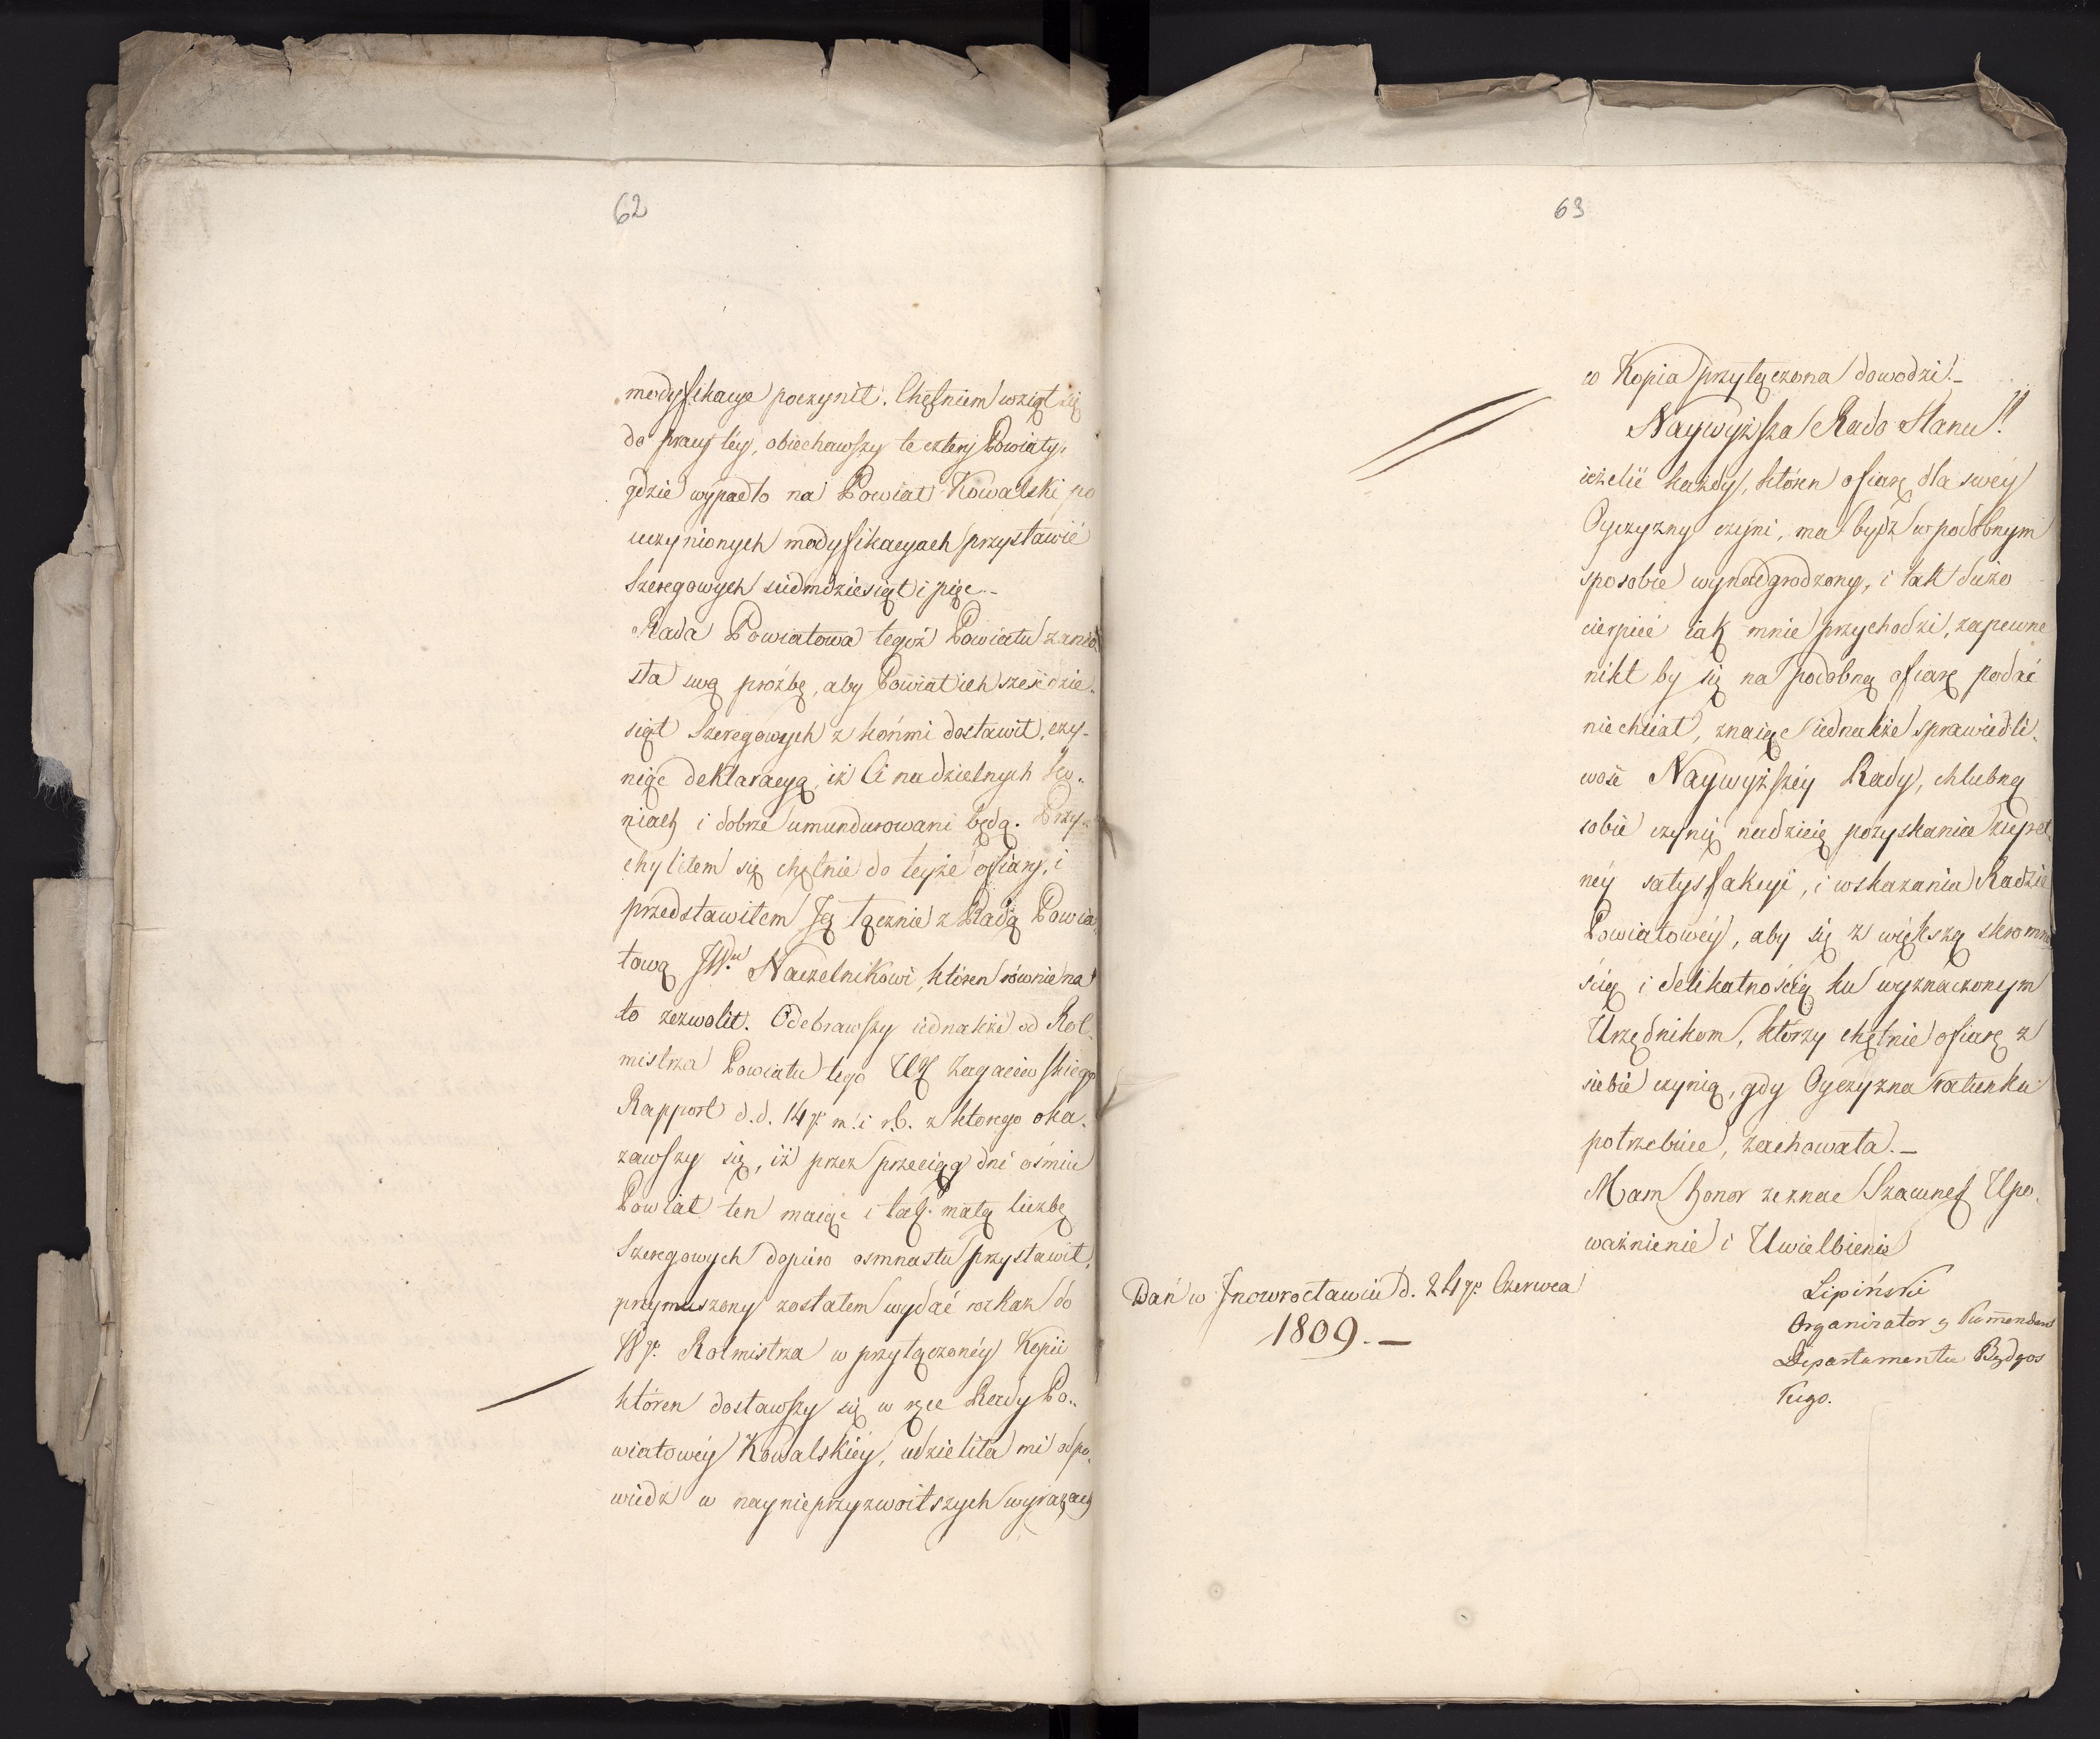 62
modyfikacye poczynił. Chętniem wziął się
do pracy téy, obiechawszy te cztery Powiaty,
gdzie wypadło na Powiat Kowalski po
uczynionych modyfikacyach przystawić
Szeregowych siedmdziesiąt i pięc.-
Rada Powiatowa tegoż Powiatu zanio-
sła swą proźbę, aby Powiat ich sześćdzie-
siąt Szeregowych z końmi dostawił, czy-
niąc deklaracyą, iż Ci na dzielnych ko-
niach i dobrze umundurowani będą. Przy-
chyliłem się chętnie do teyże ofiary, i
przedstawiłem Ją łącznie z Radą Powia-
tową JW.u Naczelnikowi, któren równie na
to zezwolił. Odebrawszy iednakże od Rot-
mistrza Powiatu tego Ur Zagaiewskiego
Rapport d.d. 14go m. i r.b. z ktorego oka-
zawszy się, iż przez przeciąg dni ośmiu
Powiat ten maiąc i tak małą liczbę
Szeregowych dopiero osmnastu przystawił,
przymuszony zostałem wydać rozkaz do
Wgo Rotmistrza w przyłączonéy Kopii
któren dostawszy się w ręce Rady Po-
wiatowéy Kowalskiéy, udzieliła mi odpo-
wiedz w naynieprzyzwoitszych wyrazach
63
w Kopia przyłączona dowodzi.-
Naywyższa Rado Stanu!!
ieżelić każdy, któren ofiarę dla swéy
Oyczyzny czyni, ma bydź w podobnym
sposobie wynadgrodzony, i tak dużo
cierpieć iak mnie przychodzi, zapewne
nikt by się na podobną ofiarę podać
niechciał, znaiąc iednakże sprawiedli-
wość Naywyższéy Rady, chlubną
sobie czynię nadzieię pozyskania zupeł-
néy satysfakcyi, i wskazania Radzie
Powiatowéy, aby się z większą skromno-
ścią i delikatnością ku wyznaczonym
Urzędnikom, którzy chętnie ofiarę z
siebie czynią, gdy Oyczyzna ratunku
potrzebuie, zachowała.-
Mam honor zeznać Szacunek Upo-
ważnienie i Uwielbienie
Lipiński
Organizator y Kommendant
Departamentu Bydgos
kiego.
Dań w Jnowrocławiu d. 24go Czerwca
1809.-